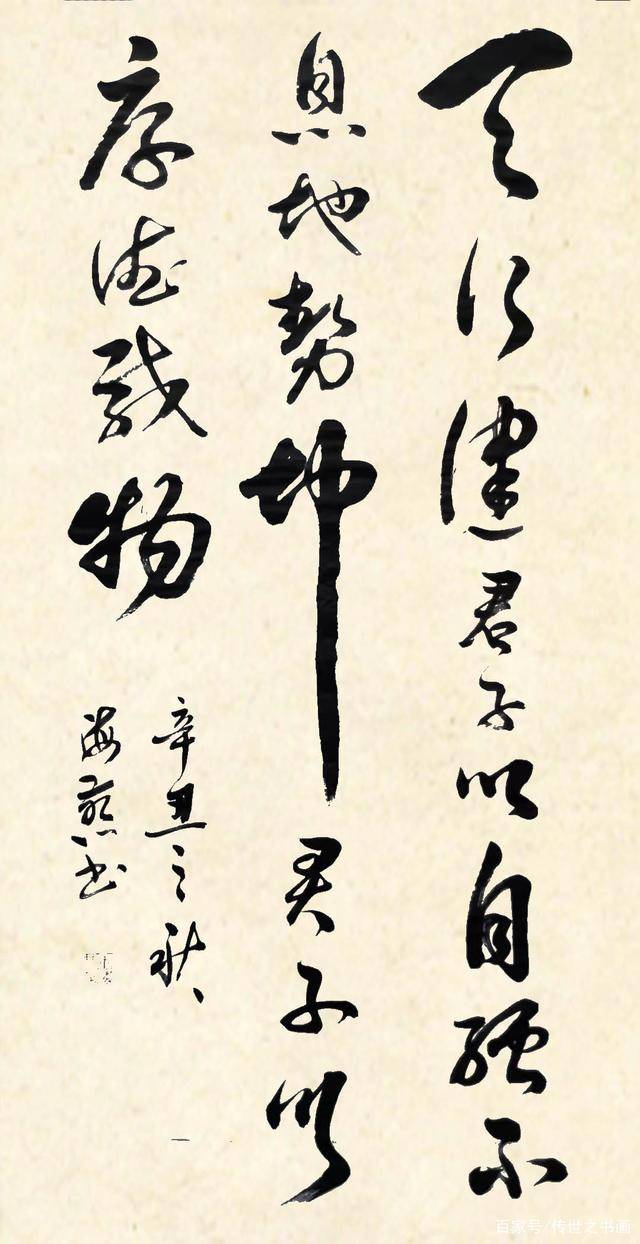 天行健君子以自强不
息地势坤君子以
厚德载物
辛丑之秋
海燕书
百家号/传世之书画